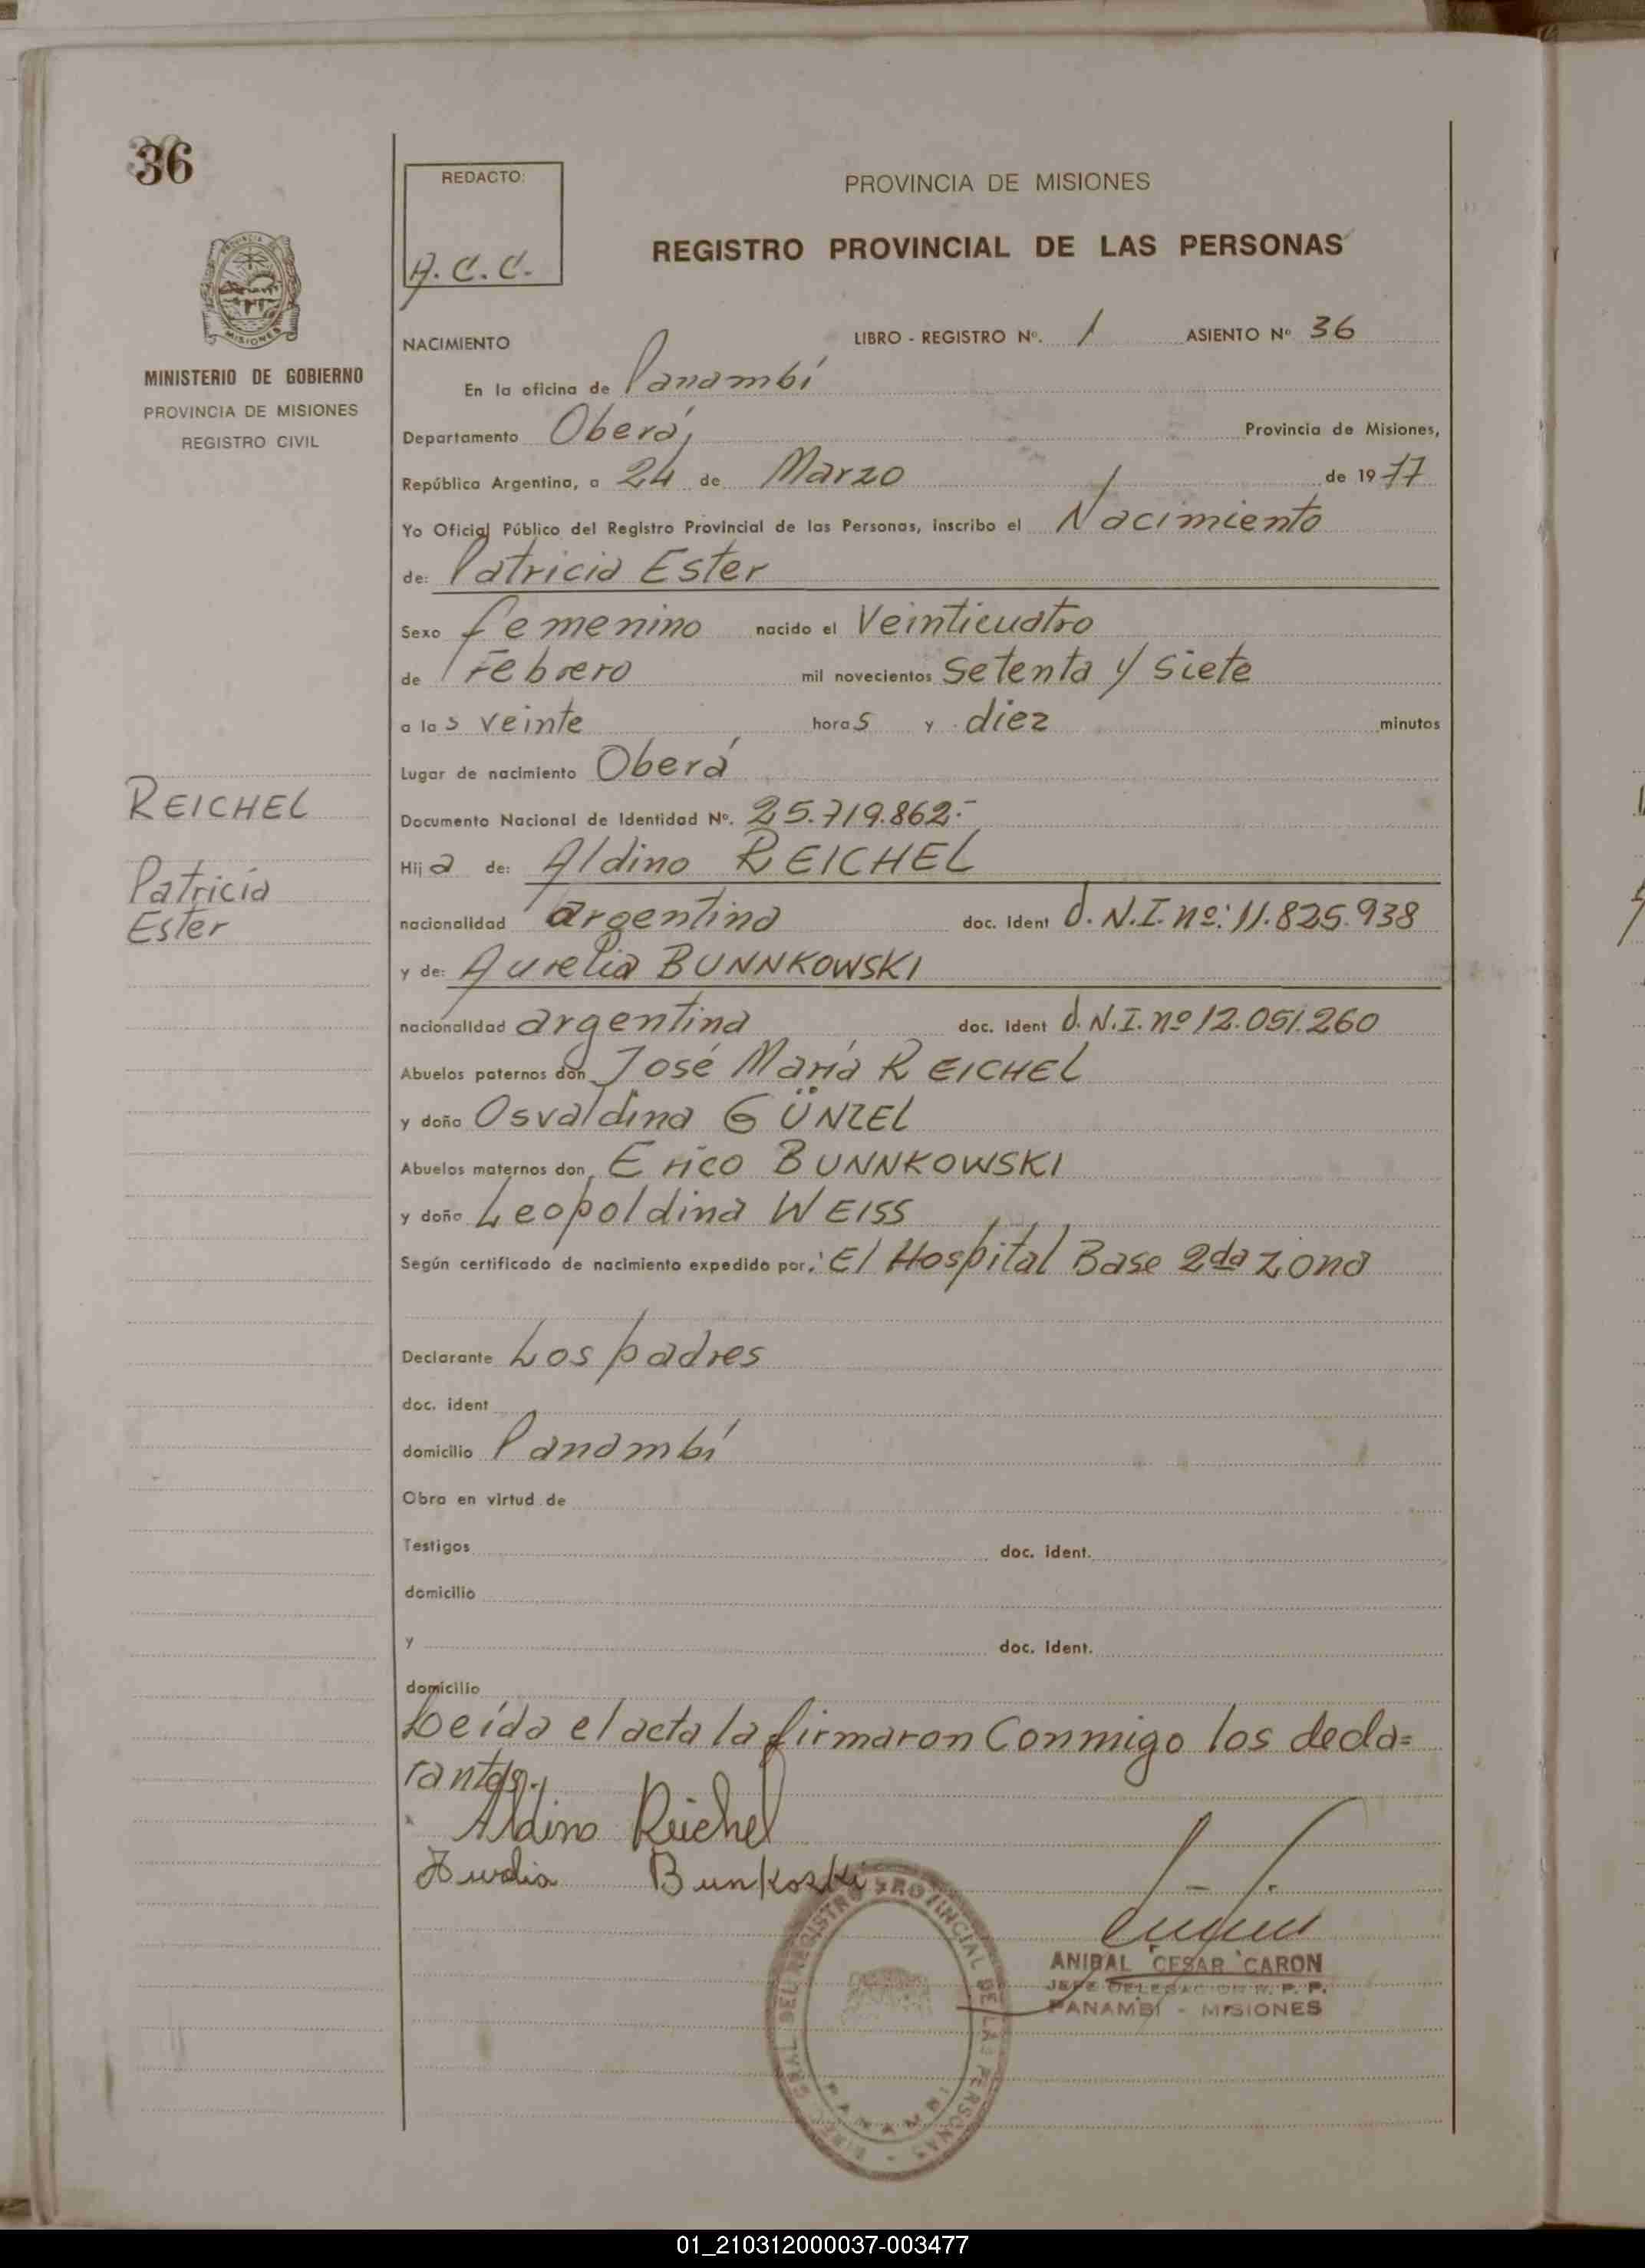 36
MINISTERIO DE GOBIERNO
PROVINCIA DE MISIONES
REGISTRO CIVIL
REICHEL
Patricia
Ester
REDACTO:
A. C. C.
PROVINCIA DE MISIONES
REGISTRO PROVINCIAL DE LAS PERSONAS
NACIMIENTO LIBRO - REGISTRO Nº. 1 ASIENTO Nº 36
En la oficina de Panambí
Departamento Oberá, Provincia de Misiones,
República Argentina, a 24 de Marzo de 1977
Yo Oficial Público del Registro Provincial de las Personas, inscribo el Nacimiento
de: Patricia Ester
Sexo femenino nacido el Veinticuatro
de Febrero mil novecientos setenta y siete
a las veinte horas y diez minutos
Lugar de nacimiento Oberá
Documento Nacional de Identidad Nº. 25.719.862.-
Hija de: Aldino REICHEL
nacionalidad argentina doc. Ident d. N.I. nº: 11.825.938
y de: Aurelia BUNNKOWSKI
nacionalidad argentina doc. Ident d. N.I. nº 12.051.260
Abuelos paternos don José María REICHEL
y doña Osvaldina GÜNZEL
Abuelos maternos don Erico BUNNKOWSKI
y doña Leopoldina WEISS
Según certificado de nacimiento expedido por: El Hospital Base 2da Zona
Declarante Los padres
doc. ident
domicilio Panambí
Obra en virtud de
Testigos doc. ident.
domicilio
y doc. Ident.
domicilio
Leída el acta la firmaron Conmigo los decla=
rantes.
Aldino Reichel
Bunkoski
ANIBAL CESAR CARON
JEFE DELEGACION R. P. P.
PANAMBÍ - MISIONES
DIREC. GRAL. DEL REGISTRO PROVINCIAL DE LAS PERSONAS
PANAMBI
01_210312000037-003477